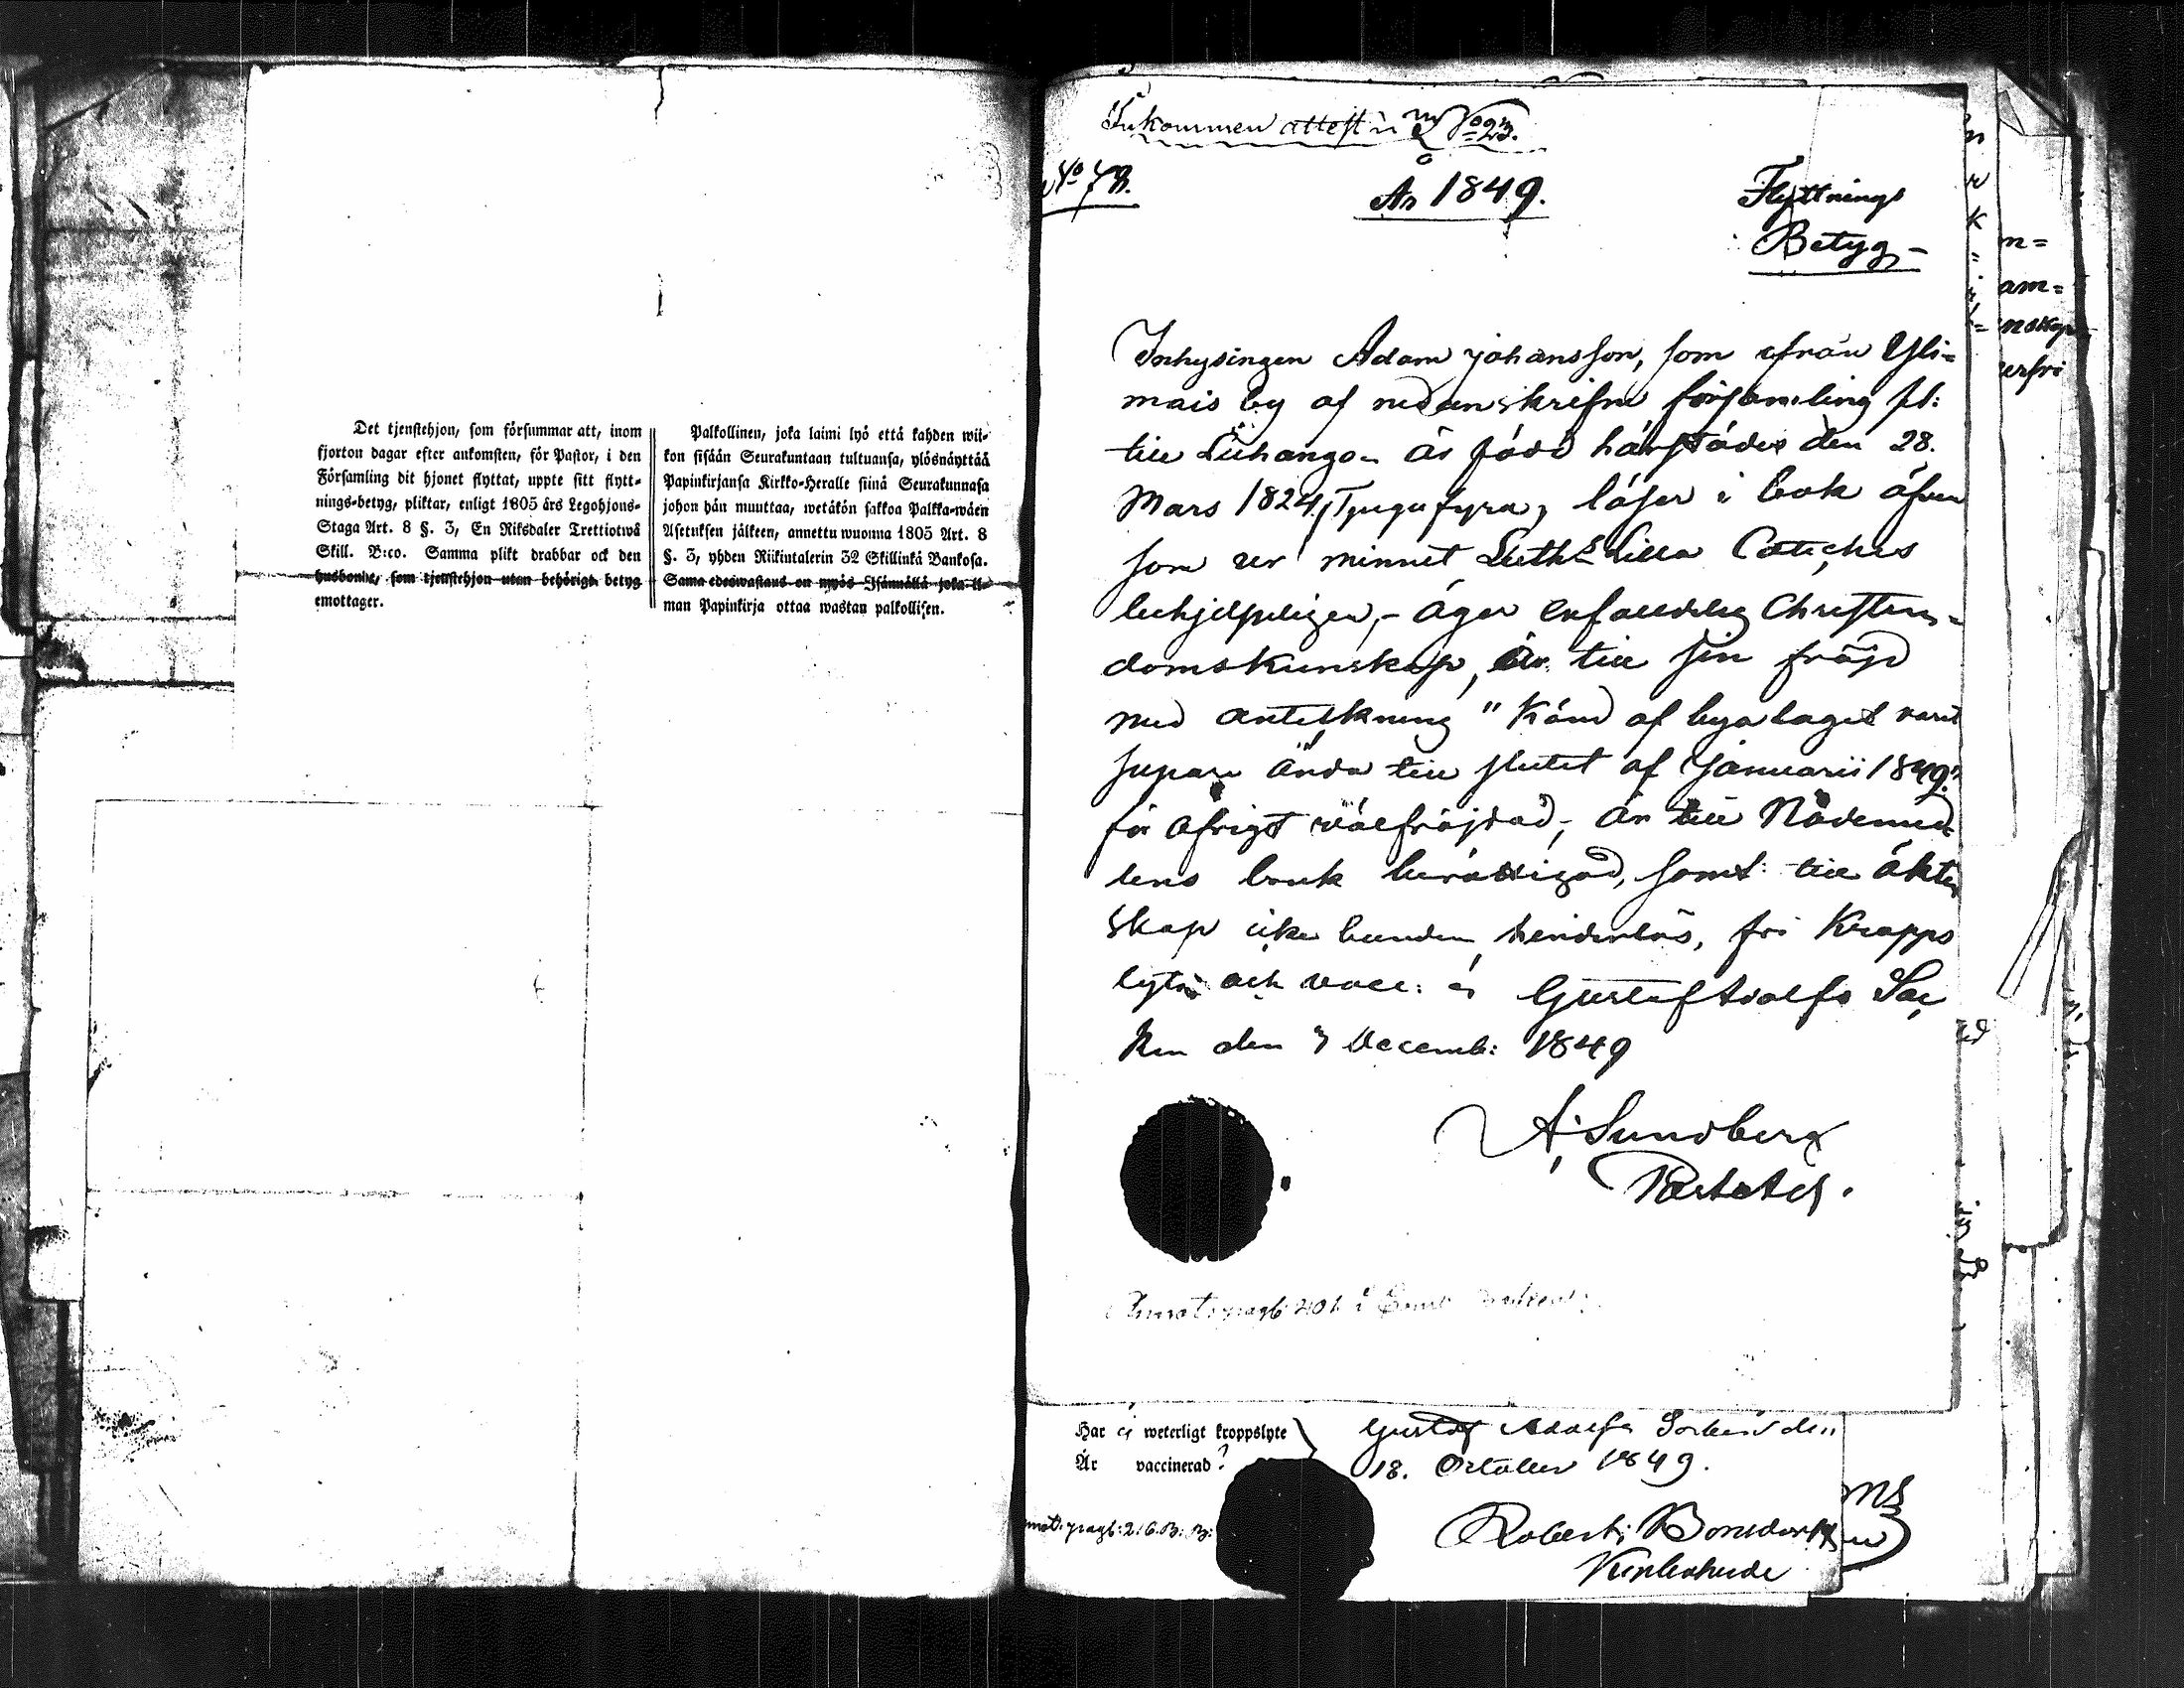 Det tjenstehjon, som försummar att, inom
fjorton dagar efter ankomsten, för Pastor, i den
Församling dit hjonet flyttat, uppte sitt flytt-
nings-betyg, pliktar, enligt 1805 års Legohjons-
Staga Art. 8 §. 3, En Riksdaler Trettiotwå
Skill. B:co. Samma plikt drabbar ock den
husbonde, som tjenstehjon utan behörigt betyg
emottager.
Palkollinen, joka laimi lyö että kahden wii-
kon sisään Seurakuntaan tultuansa, ylösnäyttää
Papinkirjansa Kirkko-Heralle siinä Seurakunnasa
johon hän muuttaa, wetäkön sakkoa Palkka-wäen
Asetuksen jälkeen, annettu wuonna 1805 Art. 8
§. 3, yhden Riikintalerin 32 Skillinkä Bankosa.
Sama edeswastaus on myös Isännällä joka il-
man Papinkirja ottaa wastan palkollisen.
Inkommen attest No 23.
No 78.
År 1849.
Flyttnings
Betyg
Inhysingen Adam Johansson, som ifrån Yli=
mais by af nedanskrifne församling fl:
till Luhango är född härstädes den 28.
Mars 1824, Tjugufyra, läser i bok äfven
som ur minnet Luth: Lilla Cateches
behjelpligen, äger enfalldelig Christen=
domskunskap, är till sin fräjd
med anteckning "Känd af byalaget varit
supare ända till slutet af Januarii 1849"
för öfrigt välfräjdad, är till Nådemed
lens bruk berättigad, samt till äkten
skap icke bunden hinderlös, fri Kropps
lyte och vacc: är Gustaf Adolfs Soc
ken den 3 Decemb: 1849
A. Sundberg
Har ej weterligt kroppslyte
Är vaccinerad
Gustaf Adolfs Socken den
18. October 1849.
Robert Bonsdorff
Kyrkoherde